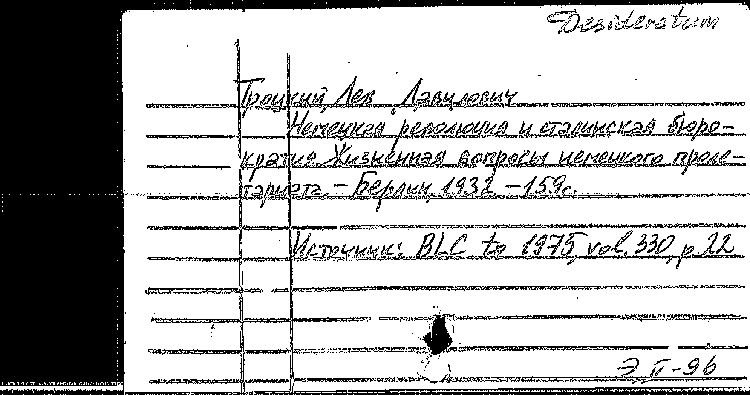 Desideratum
Троцкий, Лев Давидович
Немецкая революция и сталинская бюро-
кратия. Жизненная вопросы немецкого проле-
тариата. - Берлин, 1932 - 159с.
Источник: BLC to 1975, vol. 330, p 22
Э II-96